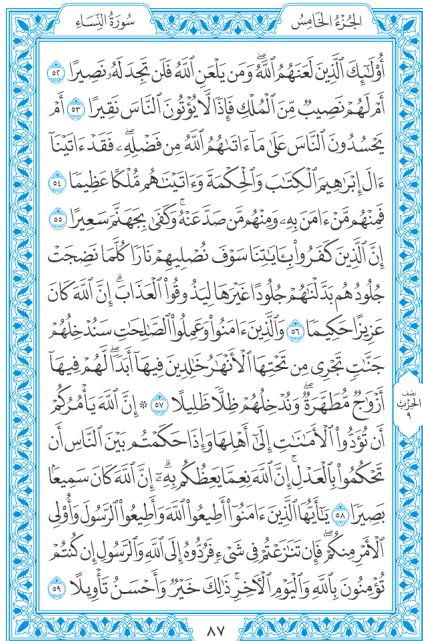 الجُزْءُ الخَامِسُ
سُورَةُ النِّسَاءِ
أُوْلَٰٓئِكَ ٱلَّذِينَ لَعَنَهُمُ ٱللَّهُۖ وَمَن يَلْعَنِ ٱللَّهُ فَلَن تَجِدَ لَهُۥ نَصِيرًا ٥٢
أَمْ لَهُمْ نَصِيبٌ مِّنَ ٱلْمُلْكِ فَإِذًا لَّا يُؤْتُونَ ٱلنَّاسَ نَقِيرًا ٥٣ أَمْ
يَحْسُدُونَ ٱلنَّاسَ عَلَىٰ مَآ ءَاتَىٰهُمُ ٱللَّهُ مِن فَضْلِهِۦۖ فَقَدْ ءَاتَيْنَآ
ءَالَ إِبْرَٰهِيمَ ٱلْكِتَٰبَ وَٱلْحِكْمَةَ وَءَاتَيْنَٰهُم مُّلْكًا عَظِيمًا ٥٤
فَمِنْهُم مَّنْ ءَامَنَ بِهِۦ وَمِنْهُم مَّن صَدَّ عَنْهُۚ وَكَفَىٰ بِجَهَنَّمَ سَعِيرًا ٥٥
إِنَّ ٱلَّذِينَ كَفَرُواْ بِـَٔايَٰتِنَا سَوْفَ نُصْلِيهِمْ نَارًا كُلَّمَا نَضِجَتْ
جُلُودُهُم بَدَّلْنَٰهُمْ جُلُودًا غَيْرَهَا لِيَذُوقُواْ ٱلْعَذَابَۗ إِنَّ ٱللَّهَ كَانَ
عَزِيزًا حَكِيمًا ٥٦ وَٱلَّذِينَ ءَامَنُواْ وَعَمِلُواْ ٱلصَّٰلِحَٰتِ سَنُدْخِلُهُمْ
جَنَّٰتٍ تَجْرِى مِن تَحْتِهَا ٱلْأَنْهَٰرُ خَٰلِدِينَ فِيهَآ أَبَدًاۖ لَّهُمْ فِيهَآ
أَزْوَٰجٌ مُّطَهَّرَةٌۖ وَنُدْخِلُهُمْ ظِلًّا ظَلِيلًا ٥٧ ۞ إِنَّ ٱللَّهَ يَأْمُرُكُمْ
أَن تُؤَدُّواْ ٱلْأَمَٰنَٰتِ إِلَىٰٓ أَهْلِهَا وَإِذَا حَكَمْتُم بَيْنَ ٱلنَّاسِ أَن
تَحْكُمُواْ بِٱلْعَدْلِۚ إِنَّ ٱللَّهَ نِعِمَّا يَعِظُكُم بِهِۦٓۗ إِنَّ ٱللَّهَ كَانَ سَمِيعًۢا
بَصِيرًا ٥٨ يَٰٓأَيُّهَا ٱلَّذِينَ ءَامَنُوٓاْ أَطِيعُواْ ٱللَّهَ وَأَطِيعُواْ ٱلرَّسُولَ وَأُوْلِى
ٱلْأَمْرِ مِنكُمْۖ فَإِن تَنَٰزَعْتُمْ فِى شَىْءٍ فَرُدُّوهُ إِلَى ٱللَّهِ وَٱلرَّسُولِ إِن كُنتُمْ
تُؤْمِنُونَ بِٱللَّهِ وَٱلْيَوْمِ ٱلْـَٔاخِرِۚ ذَٰلِكَ خَيْرٌ وَأَحْسَنُ تَأْوِيلًا ٥٩
نصف
الحزب
٩
٨٧